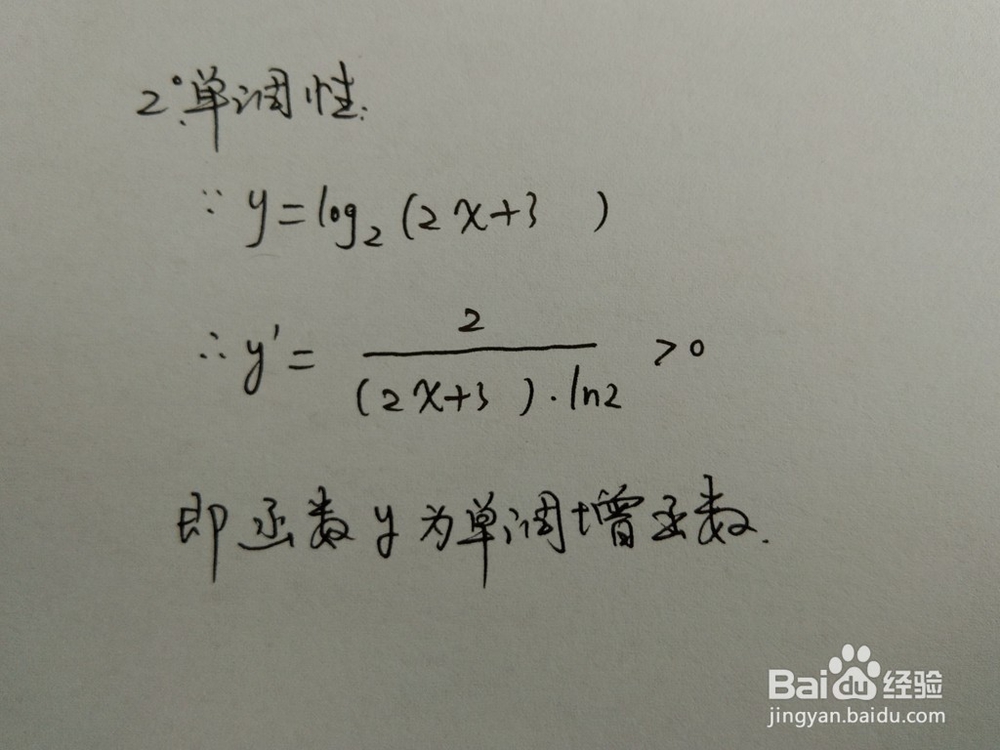 2°.单调性.
∵ y=log₂(2x+3 )
∴ y'= 2/((2x+3 )·ln2) >0
即函数y为单调增函数.
Baidu经验
jingyan.baidu.com